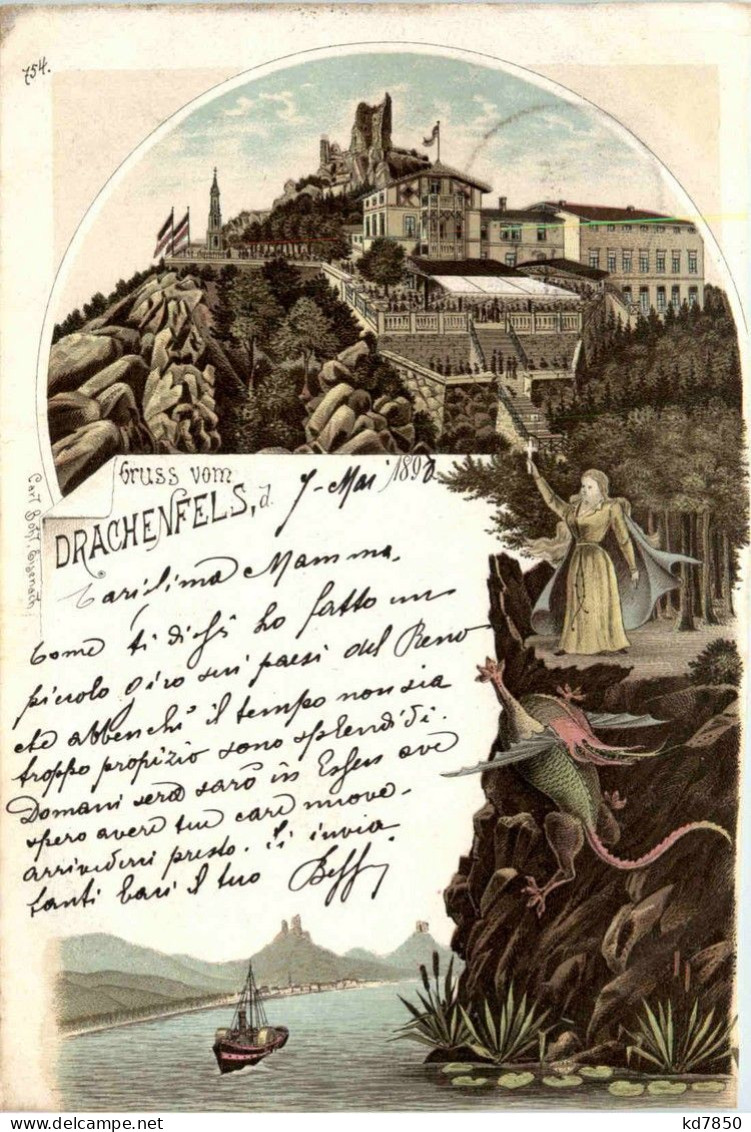 754.
Gruss vom
DRACHENFELS, d. 7 - Mai 189
Carissima Mamma.
Come ti dissi ho fatto un
piccolo giro sui paesi del Reno
che abbenchè il tempo non sia
troppo propizio sono splendidi.
Domani sera sarò in Essen ove
spero avere tue care nuove.
arrivederci presto. Ti invia
tanti baci il tuo
kd7850